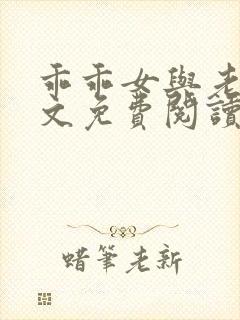 乖乖女與老
文免費閱讀
蜡筆老新